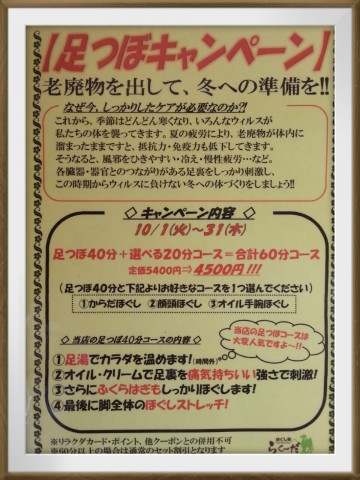 【足つぼキャンペーン】
老廃物を出して、冬への準備を!!
なぜ今、しっかりしたケアが必要なのか?!
これから、季節はどんどん寒くなり、いろんなウィルスが
私たちの体を襲ってきます。夏の疲労により、老廃物が体内に
溜まったままですと、抵抗力・免疫力も低下してきます。
そうなると、風邪をひきやすい・冷え・慢性疲労…など。
各臓器・器官とのつながりがある足裏をしっかり刺激し、
この時期からウィルスに負けない冬への体づくりをしましょう!!
◇ キャンペーン内容 ◇
10/1(火)～31(木)
足つぼ40分＋選べる20分コース＝合計60分コース
定価5400円⇒4500円!!!
(足つぼ40分と下記よりお好きなコースを1つ選んでください)
①からだほぐし ②顔頭ほぐし ③オイル手腕ほぐし
◇ 当店の足つぼ40分コースの内容 ◇
当店の足つぼコースは
大変人気ですよ～!!
①足湯でカラダを温めます!(時間外)
②オイル・クリームで足裏を痛気持ちいい強さで刺激!
③さらにふくらはぎもしっかりほぐします!
④最後に脚全体のほぐしストレッチ!
※リラクダカード・ポイント、他クーポンとの併用不可
※60分以上の場合は通常のセット割引となります
ほぐし処
らく～だ